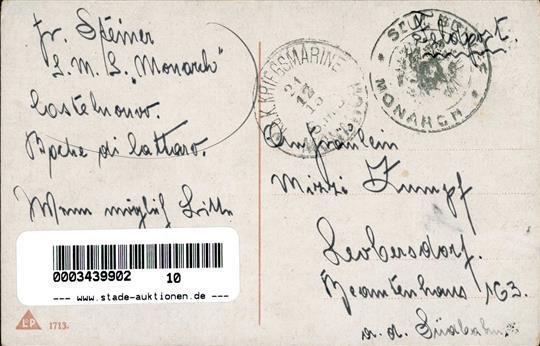 Fr. Speiner
S. M. S. "Monarch"
Castelnuovo.
Bocche di Cattaro.
Wenn möglich bitte
K.U.K. KRIEGSMARINE
21
12
15
MONARCH
MONARCH
Feldpost.
An Fräulein
Mizzi Zumpf
Leobersdorf.
Beamtenhaus 163.
a. d. Südbahn.
0003439902 10
--- www.stade-auktionen.de ---
LP 1713.